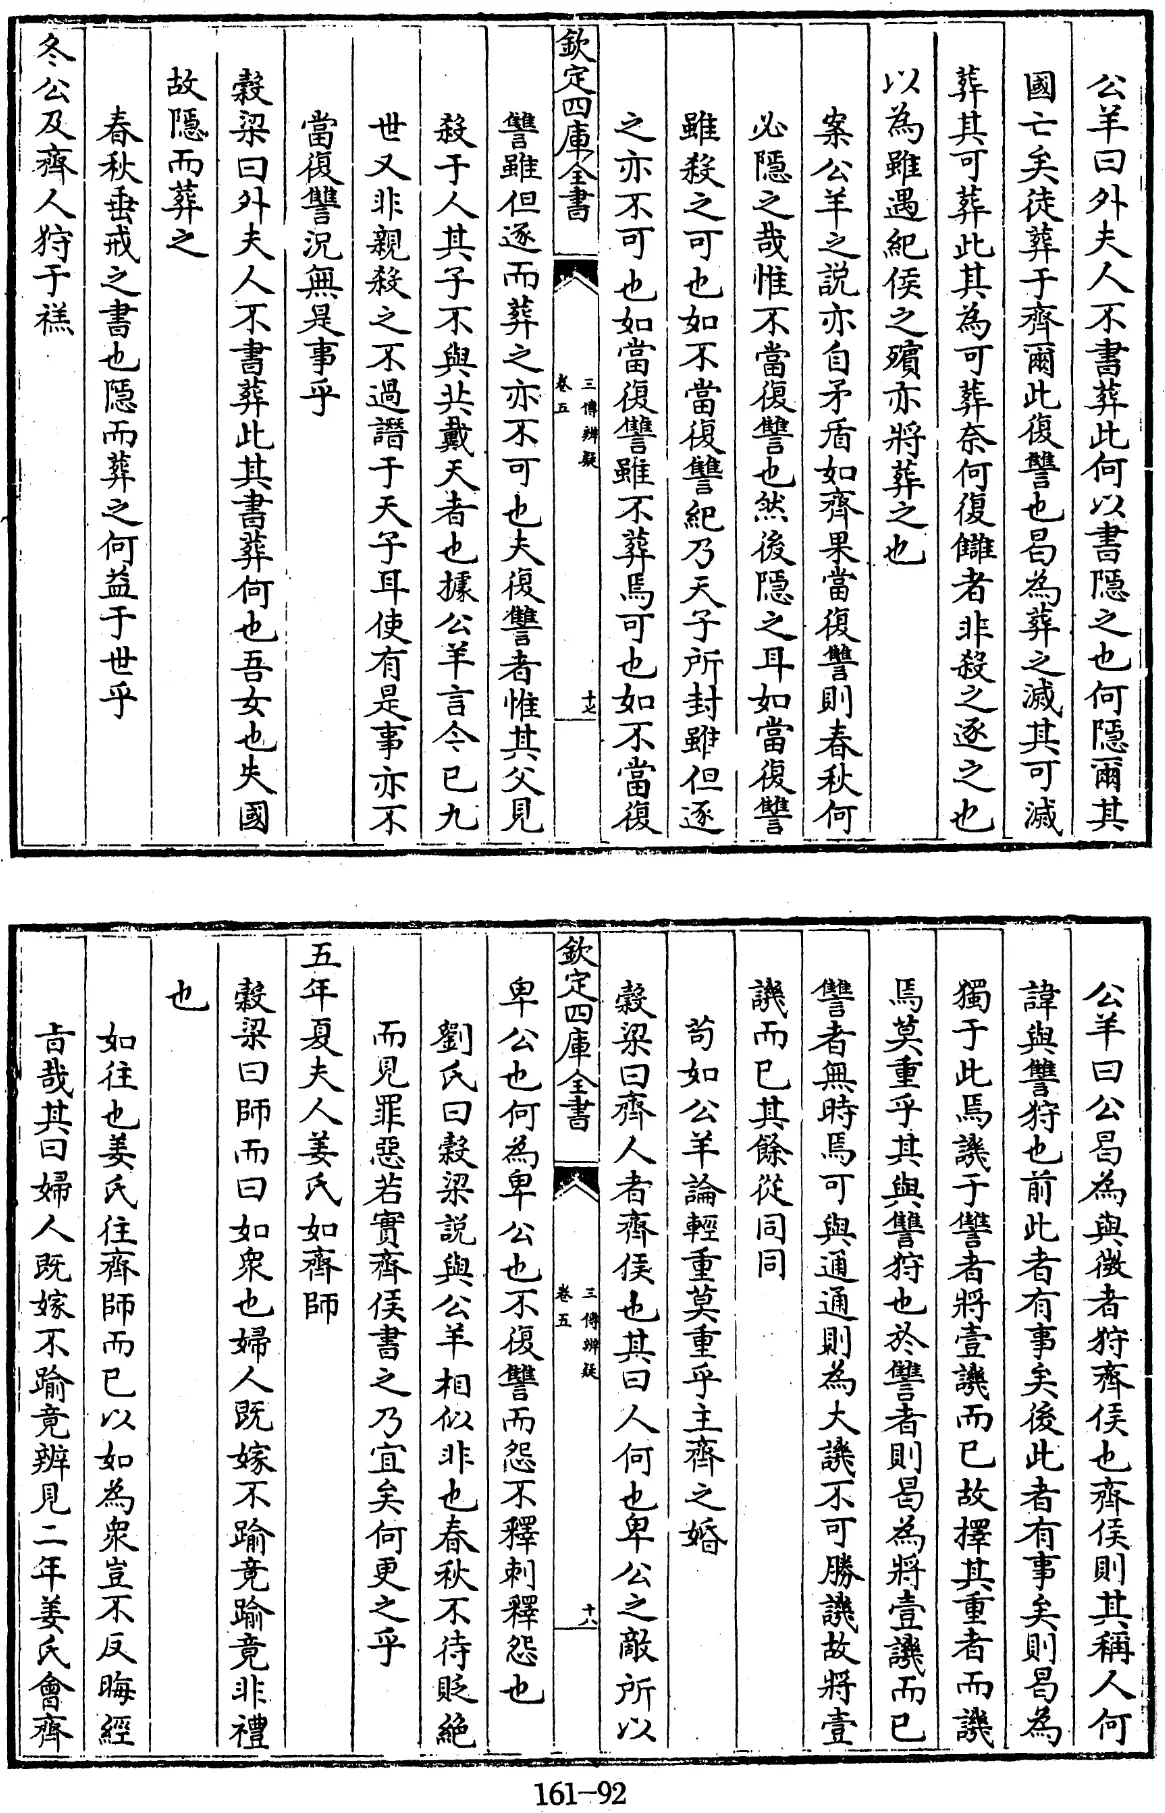 公羊曰外夫人不書葬此何以書隱之也何隱爾其
國亡矣徒葬于齊爾此復讐也曷為葬之滅其可滅
葬其可葬此其為可葬奈何復讎者非殺之逐之也
以為雖遇紀侯之殯亦將葬之也
案公羊之說亦自矛盾如齊果當復讐則春秋何
必隱之哉惟不當復讐也然後隱之耳如當復讐
雖殺之可也如不當復讐紀乃天子所封雖但逐
之亦不可也如當復讐雖不葬焉可也如不當復
欽定四庫全書
三傳辨疑
卷五
十七
讐雖但逐而葬之亦不可也夫復讐者惟其父見
殺于人其子不與共戴天者也據公羊言今已九
世又非親殺之不過譖于天子耳使有是事亦不
當復讐況無是事乎
穀梁曰外夫人不書葬此其書葬何也吾女也失國
故隱而葬之
春秋垂戒之書也隱而葬之何益于世乎
冬公及齊人狩于禚
公羊曰公曷為與微者狩齊侯也齊侯則其稱人何
諱與讐狩也前此者有事矣後此者有事矣則曷為
獨于此焉譏于讐者將壹譏而已故擇其重者而譏
焉莫重乎其與讐狩也於讐者則曷為將壹譏而已
讐者無時焉可與通通則為大譏不可勝譏故將壹
譏而已其餘從同同
苟如公羊論輕重莫重乎主齊之婚
穀梁曰齊人者齊侯也其曰人何也卑公之敵所以
欽定四庫全書
三傳辨疑
卷五
十八
卑公也何為卑公也不復讐而怨不釋刺釋怨也
劉氏曰穀梁說與公羊相似非也春秋不待貶絕
而見罪惡若實齊侯書之乃宜矣何更之乎
五年夏夫人姜氏如齊師
穀梁曰師而曰如衆也婦人既嫁不踰竟踰竟非禮
也
如往也姜氏往齊師而已以如為衆豈不反晦經
㫖哉其曰婦人既嫁不踰竟辨見二年姜氏會齊
161-92